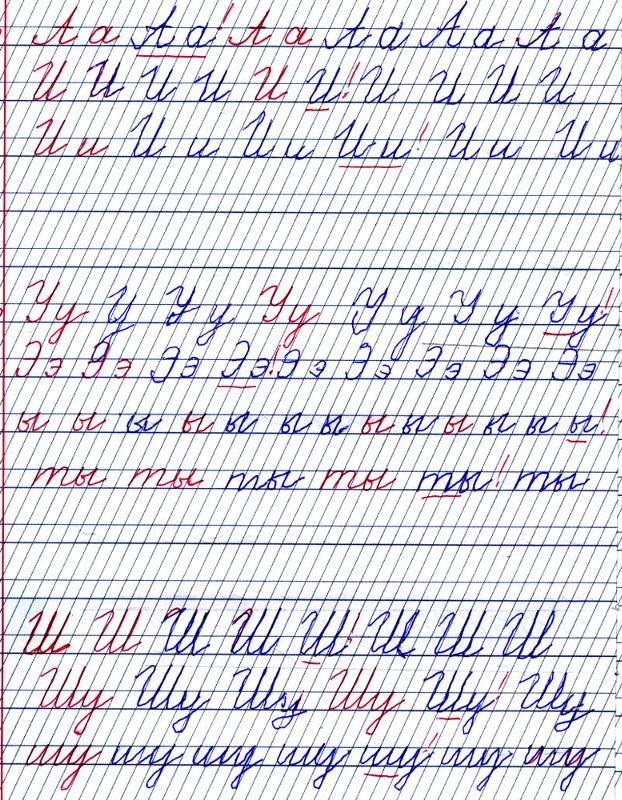 А а А а ! А а А а А а А а
И И И И И И ! И И И И
И и И и И и И и ! И и И и
Уу У Уу Уу Уу Уу Уу !
Ээ Ээ Ээ Ээ ! Ээ Ээ Ээ Ээ Ээ
ы ы ы ы ы ы ы ы ы ы ы ы ы !
ты ты ты ты ты ! ты
Ш Ш Ш Ш Ш ! Ш Ш Ш
Шу Шу Шу Шу Шу ! Шу
шу шу шу шу шу ! шу шу